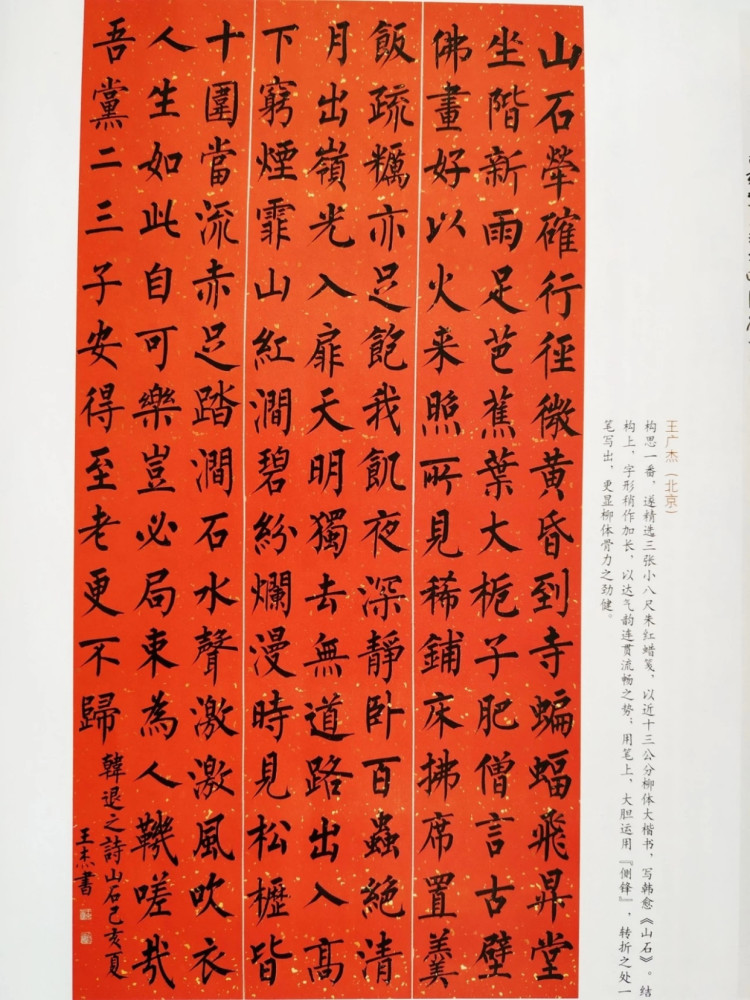 山石犖確行徑微黄昏到寺蝙蝠飛昇堂
坐階新雨足芭蕉葉大栀子肥僧言古壁
佛畫好以火来照所見稀鋪床拂席置羹
飯疏糲亦足飽我飢夜深靜卧百蟲絕清
月出嶺光入扉天明獨去無道路出入高
下窮煙霏山紅澗碧紛爛漫時見松櫪皆
十圍當流赤足踏澗石水聲激激風吹衣
人生如此自可樂豈必局束為人鞿嗟哉
吾黨二三子安得至老更不歸
韓退之詩山石己亥夏
王杰書
王广杰（北京）
构思一番，遂精选三张小八尺朱红蜡笺，以近十三公分柳体大楷书，写韩愈《山石》。结
构上，字形稍作加长，以达气韵连贯流畅之势；用笔上，大胆运用『侧锋』，转折之处一
笔写出，更显柳体骨力之劲健。